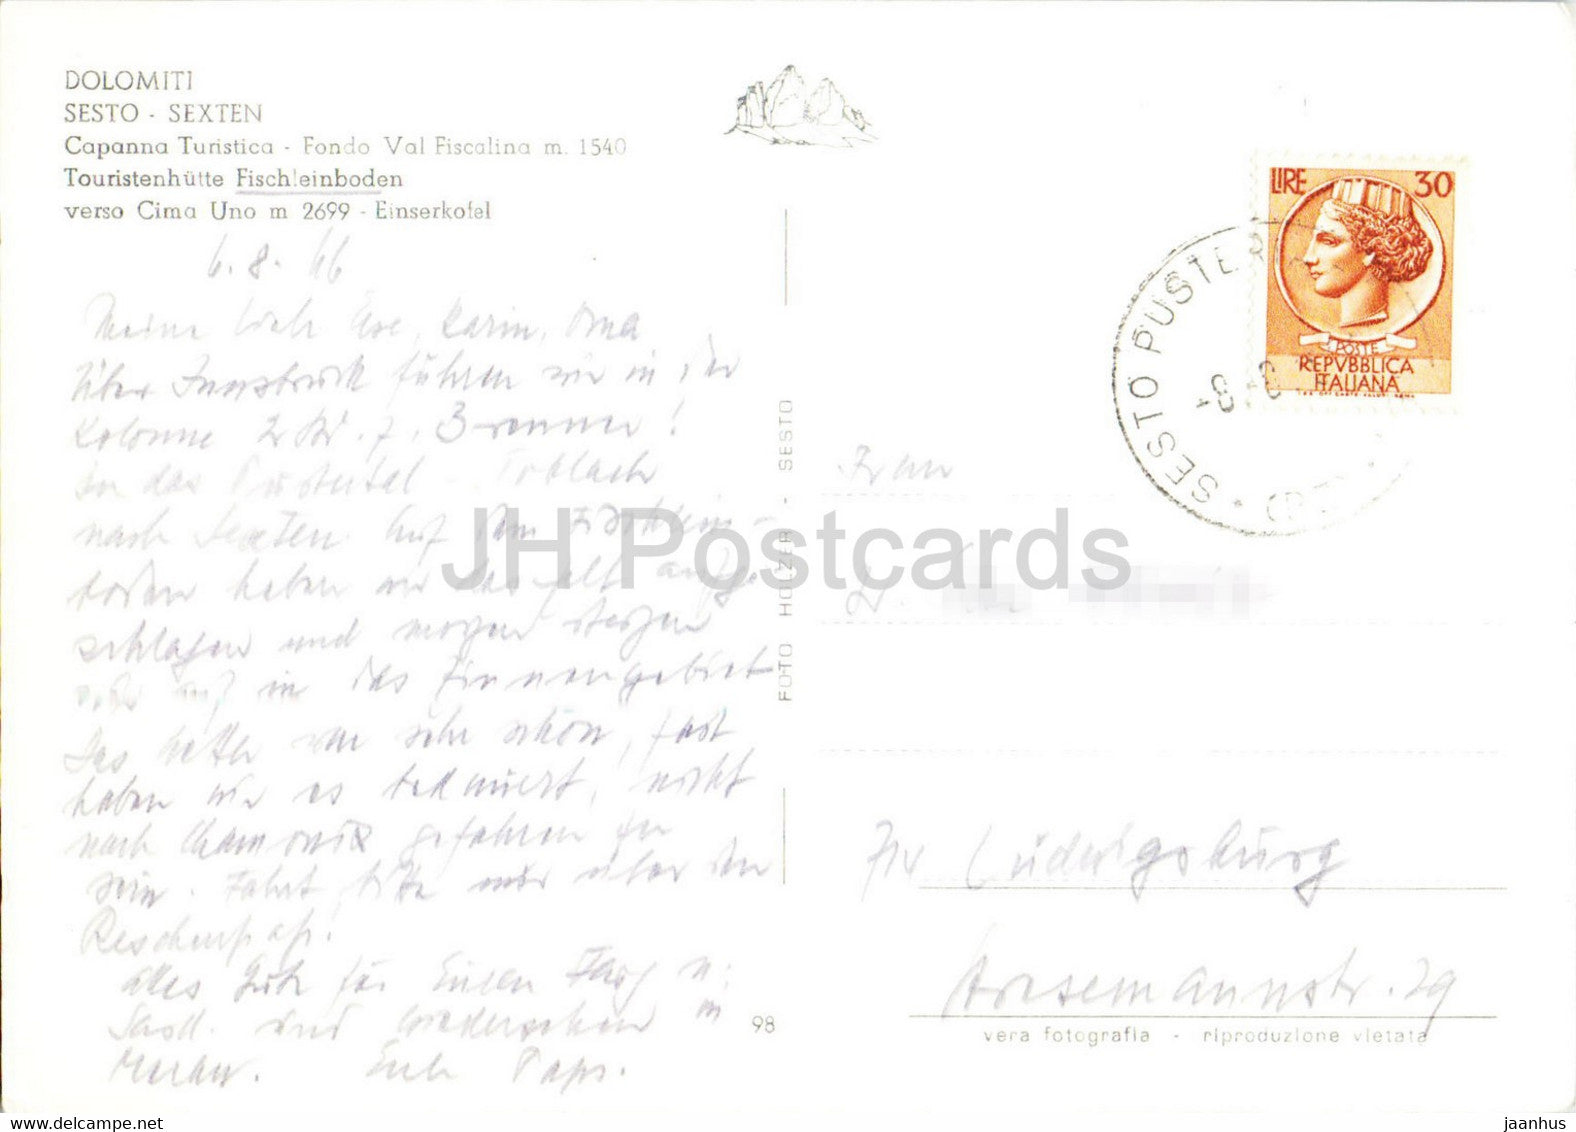 DOLOMITI
SESTO - SEXTEN
Capanna Turistica - Fondo Val Fiscalina m. 1540
Touristenhütte Fischleinboden
verso Cima Uno m 2699 - Einserkofel
6.8.66
Meine lieb Karin, Oma
über Innsbruck führen wir in der
Kolonne Brenner!
in das Pustertal. Toblach
nach Sexten. Auf dem Fischlein-
boden haben wir das Zelt aufge-
schlagen und morgen steigen
wir auf in das Zinnengebiet
Das Wetter war sehr schön, fast
haben wir es bedauert, nicht
nach Chamonix gefahren zu
sein. Fahrt bitte nur über den
Reschenpaß!
Alles Gute für Euren u.
und Wiedersehen in
Meran. Euer Papi.
FOTO HOLZER - SESTO
98
LIRE 30
POSTE
REPVBBLICA
ITALIANA
SESTO PUSTER
Frau
Dr.
714 Ludwigsburg
str. 29
vera fotografia - riproduzione vietata
JH Postcards
delcampe.net
jaanhus